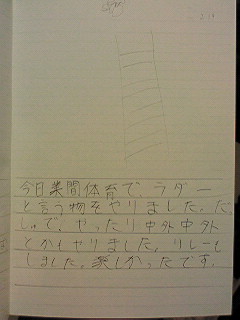 今日業間体育でラダー
と言う物をやりました。だっ
しゅで、やったり中外中外
とかもやりました。リレーも
しました。楽しかったです。